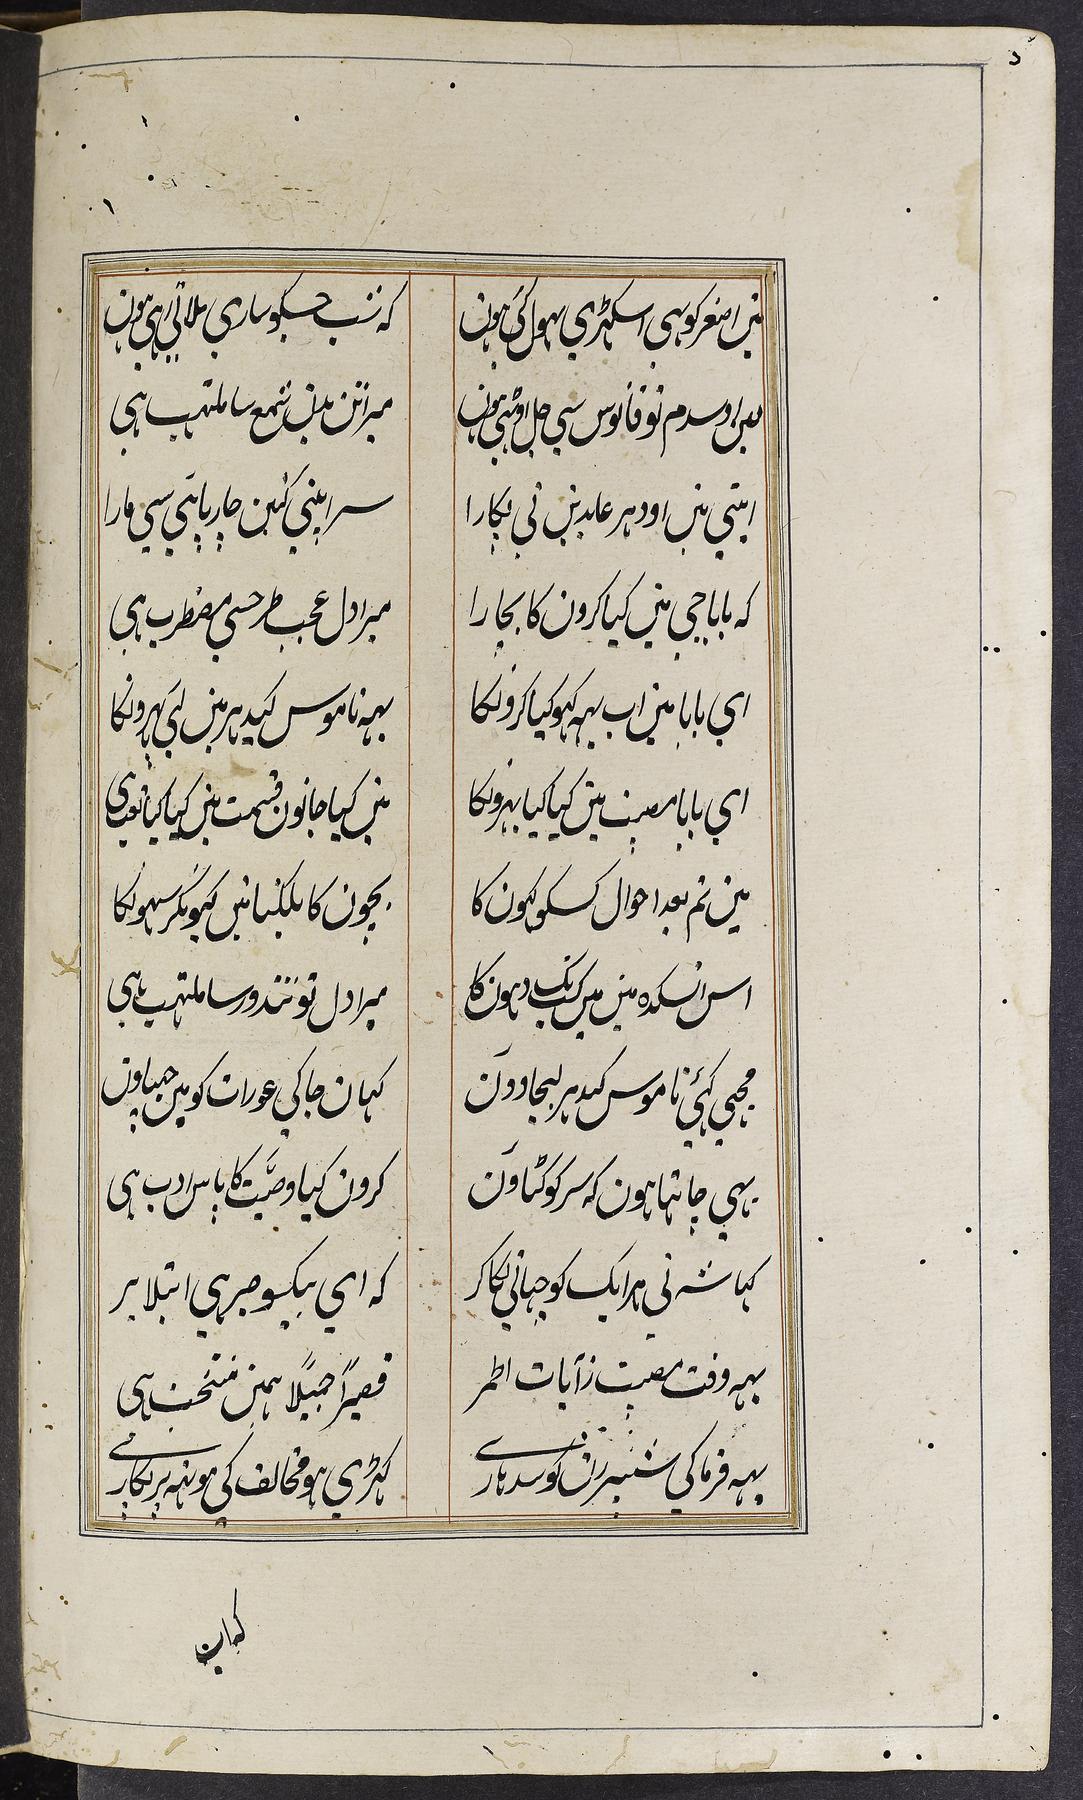 مین اصغر کو بهی اسکهڑی بهول گئی هون
که شب جسکو ساری ملاتی رهی هون
اوسدم تو فانوس سی جل اوٹهی هون
میرا تن بدن شمع سا ملتهب هی
اتنی مین اودهر عابدین نی پکارا
سر اپنی کئین چارپائی سی مارا
که بابا جی مین کیا کرون کا بچارا
میرا دل عجب طرح سی مضطرب هی
ای بابا مین اب یهه کهو کیا کرونکا
یهه ناموس کیدهر مین لی پهرونکا
ای بابا مصیبت مین کیا کیا بهرونکا
مین کیا جانون قسمت مین کیا کیا تعب هی
مین تم بعد احوال کسکو کهون کا
بچون کا بلکنا مین کیونکر سهونکا
اس اتشکده مین مین کب تک دهون کا
میرا دل تو تندور سا ملتهب هی
مجهی کهئی ناموس کیدهر لیجاوون
کهان جا کی عورات کو مین چهپاون
یهی چاهتا هون که سر کو کٹاون
کرون کیا وصیت کا پاس ادب هی
کها شه نی هر ایک کو چهاتی لکا کر
که ای بیکسو صبر هی ابتلا پر
یهه وقت مصیبت ز آیات اطهر
فصبراً جمیلاً همین منتخب هی
یهه فرما کی شبیر رن کو سدهاری
کهڑی هو مخالف کی مونهه پر پکاری
کهان